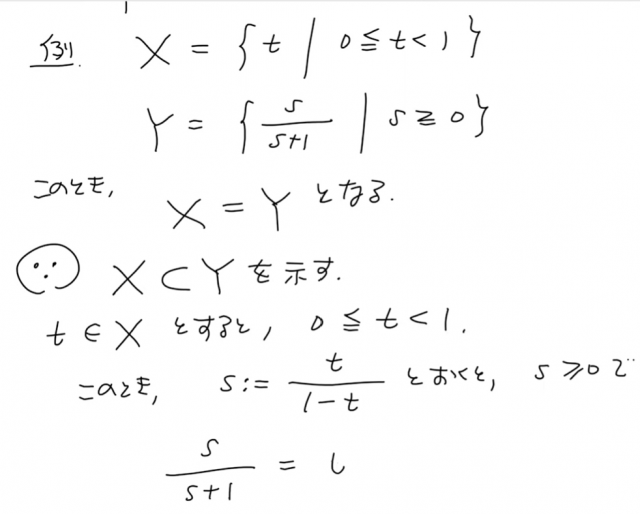 例. X = { t | 0 ≦ t < 1 }
Y = { s/(s+1) | s ≧ 0 }
このとき,
X = Y となる.
∵ X ⊂ Y を示す.
t ∈ X とすると, 0 ≦ t < 1.
このとき, s := t/(1-t) とおくと, s ≥ 0 で
s/(s+1) =